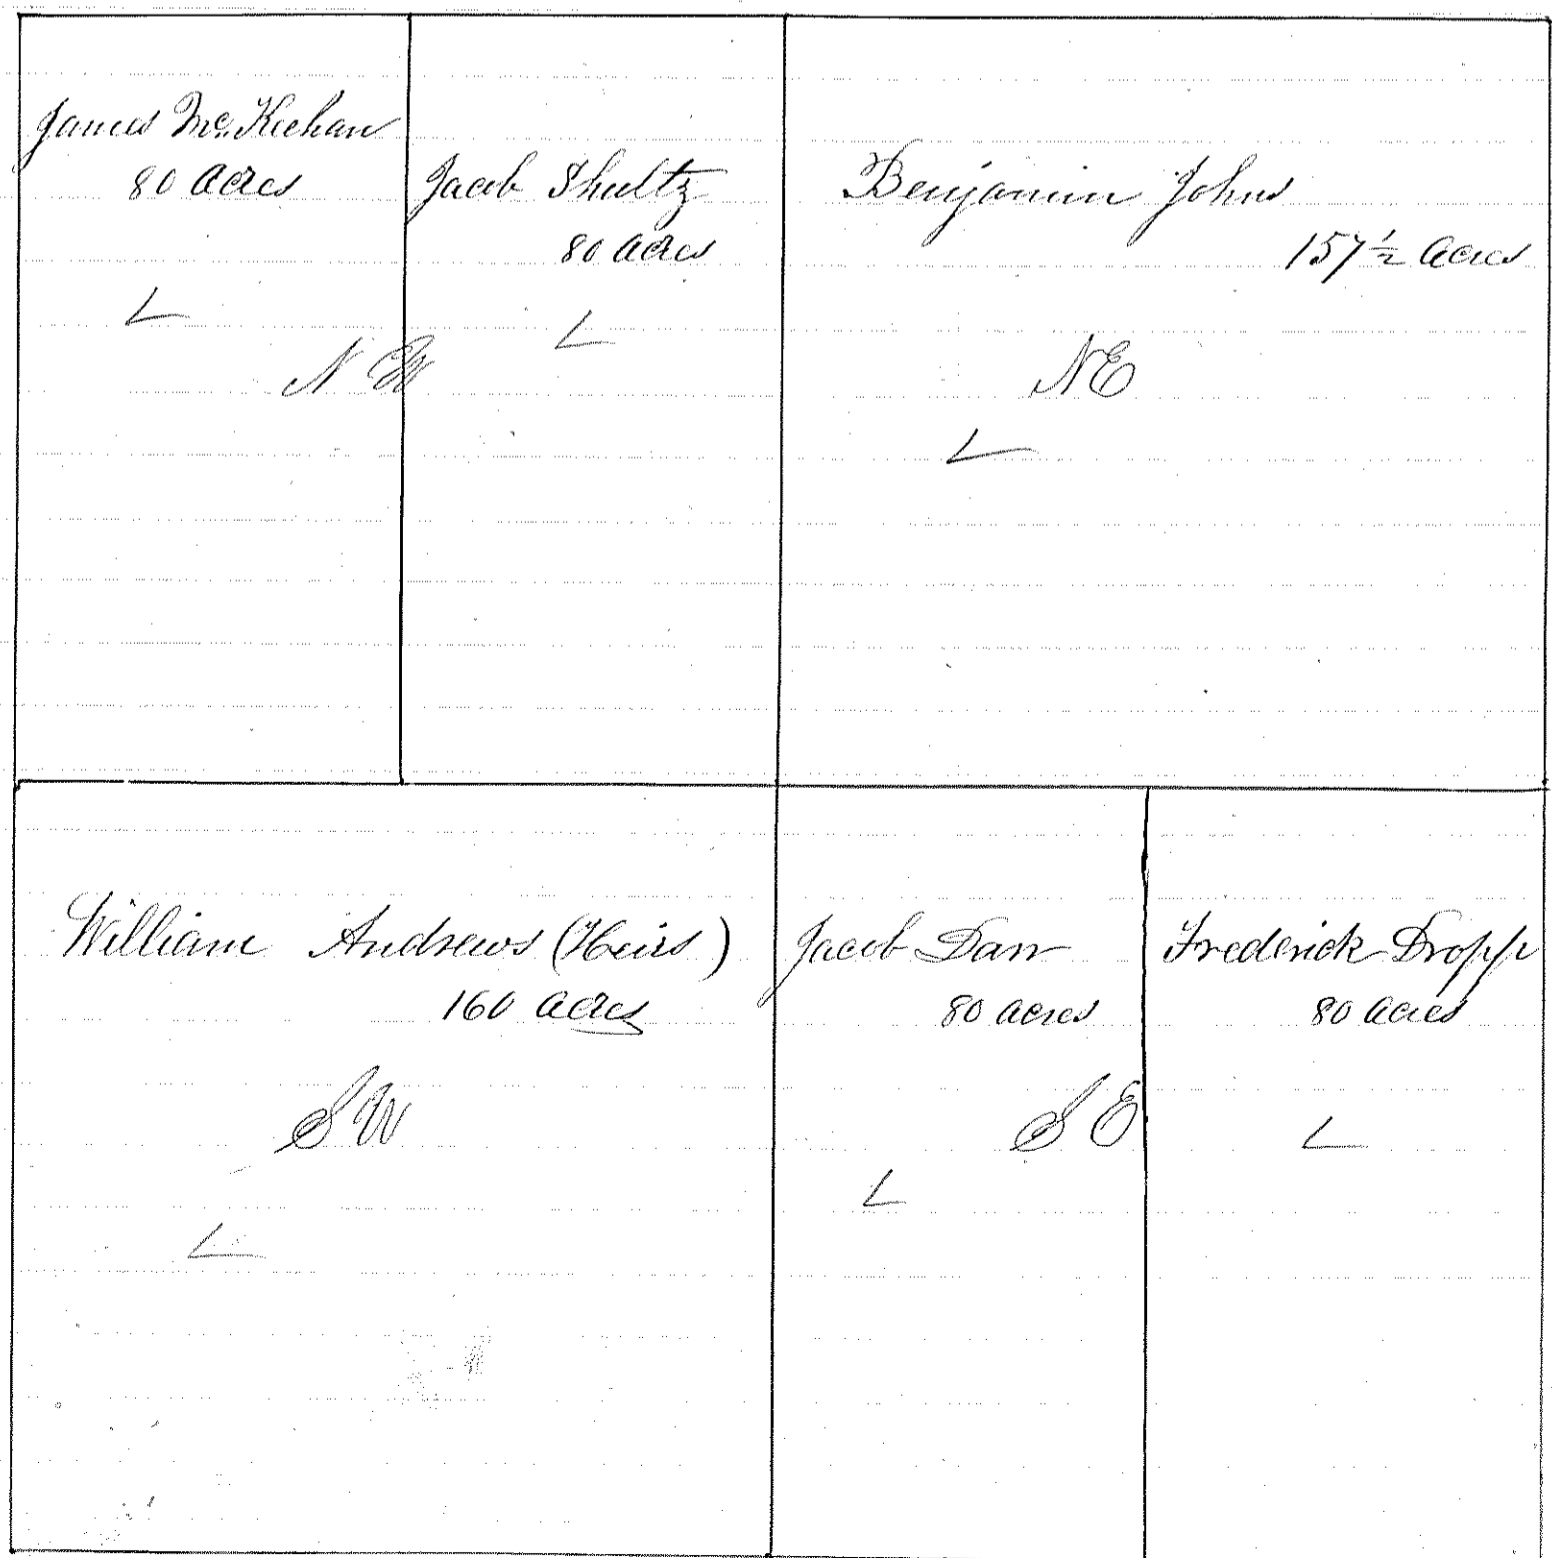 James Mc. Keehan
80 Acres
Jacob Shultz
80 Acres
N W
Benjamin Johns
157 1/2 Acres
NE
William Andrews (Heirs)
160 Acres
SW
Jacob Darr
80 Acres
S E
Frederick Dropp
80 Acres